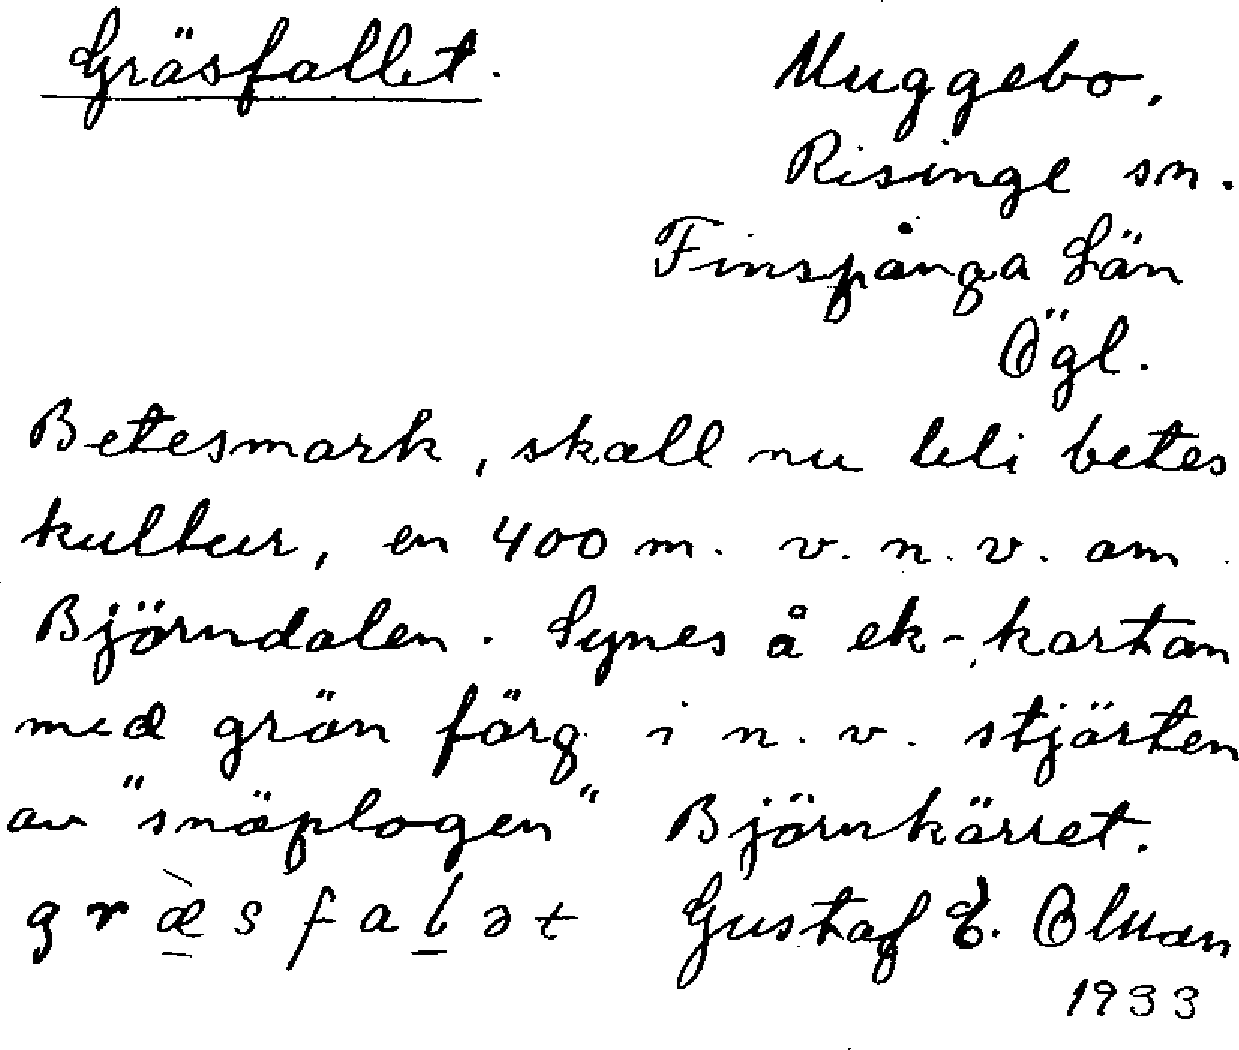 Gräsfallet.
Muggebo,
Risinge sn.
Finspånga Län
Ögl.
Betesmark, skall nu bli betes
kultur, en 400 m. v. n. v. om
Björndalen. Synes å ek-kartan
med grön färg i n. v. stjärten
av "snöplogen" Björnkärret.
græ̀sfalət Gustaf E. Olman
1933